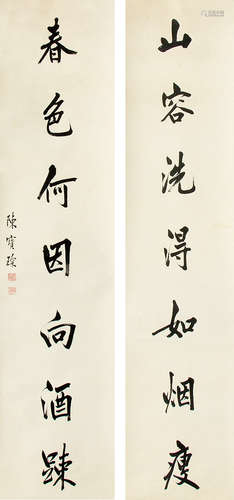 山容洗得如烟瘦
春色何因向酒踈
陳寶琛